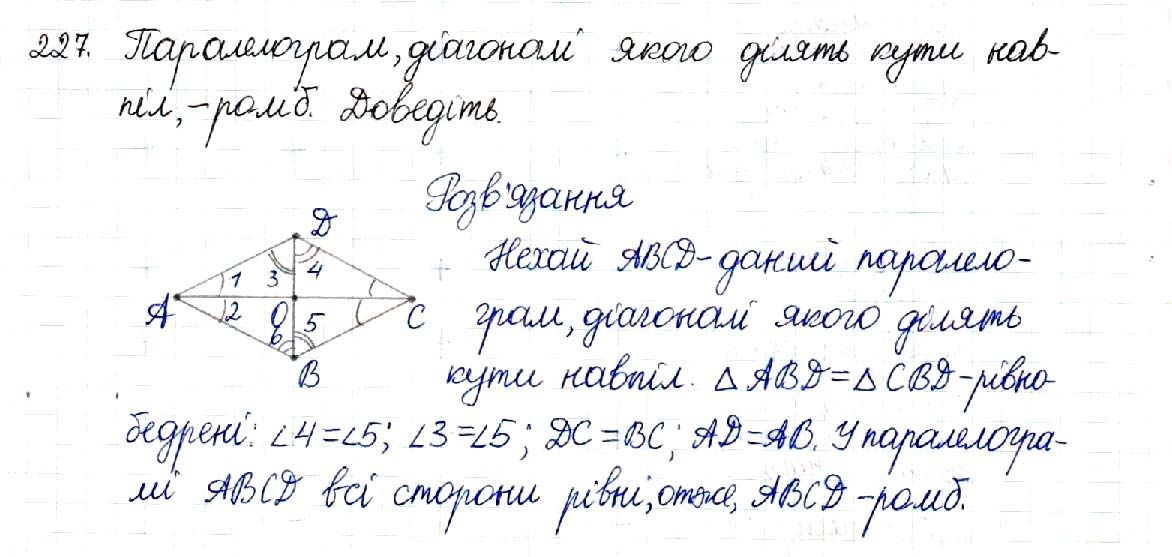 227. Паралелограм, діагоналі якого ділять кути нав-
піл, – ромб. Доведіть.
Розв'язання
D
1 3 4
A 2 O 5 C
6
B
Нехай ABCD – даний паралело-
грам, діагоналі якого ділять
кути навпіл. △ ABD = △ CBD – рівно
бедрені: ∠4 = ∠5; ∠3 = ∠5; DC = BC; AD = AB. У паралелогра-
мі ABCD всі сторони рівні, отже, ABCD – ромб.